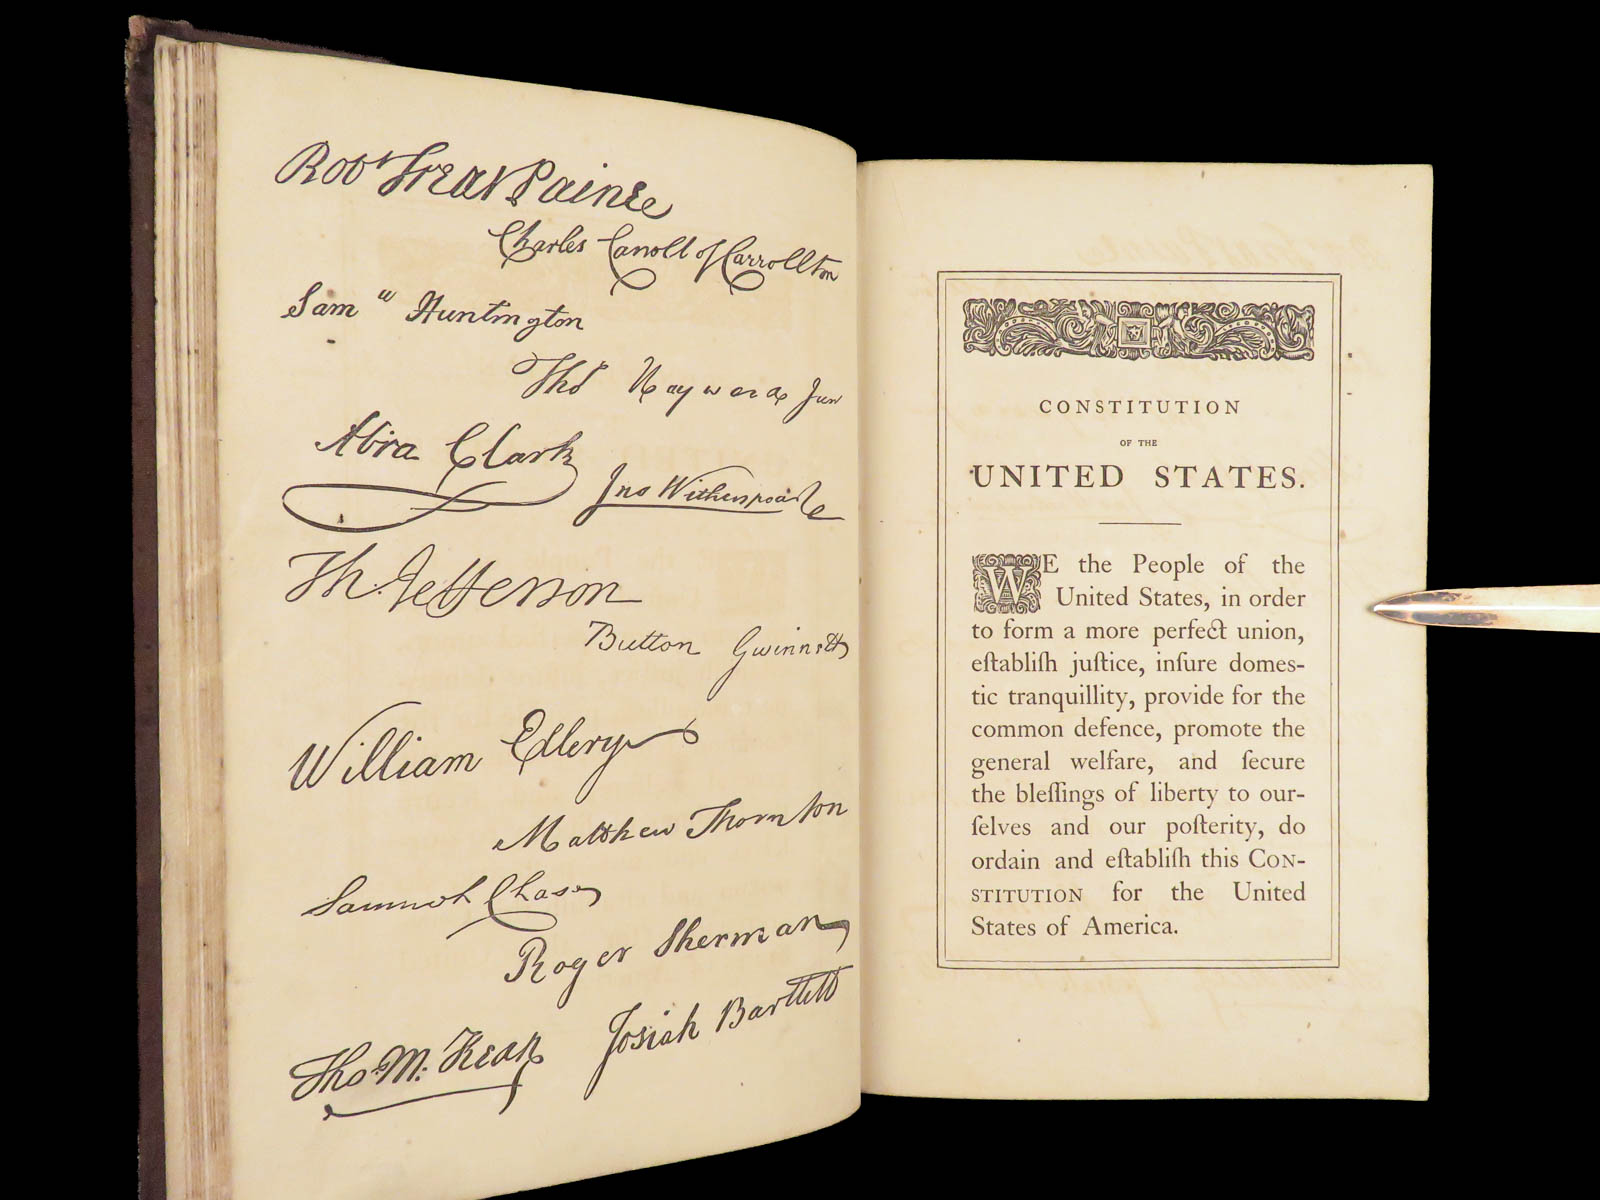 Robt Treat Paine
Charles Carroll of Carrollton
Saml Huntington
Thos Heyward Junr
Abra Clark
Jno Witherspoon
Th. Jefferson
Button Gwinnett
William Ellery
Matthew Thornton
Samuel Chase
Roger Sherman
Josiah Bartlett
Tho. M. Kean
CONSTITUTION
OF THE
UNITED STATES.
WE the People of the
United States, in order
to form a more perfect union,
eſtabliſh juſtice, inſure domeſ-
tic tranquillity, provide for the
common defence, promote the
general welfare, and ſecure
the bleſſings of liberty to our-
ſelves and our poſterity, do
ordain and eſtabliſh this CON-
STITUTION for the United
States of America.